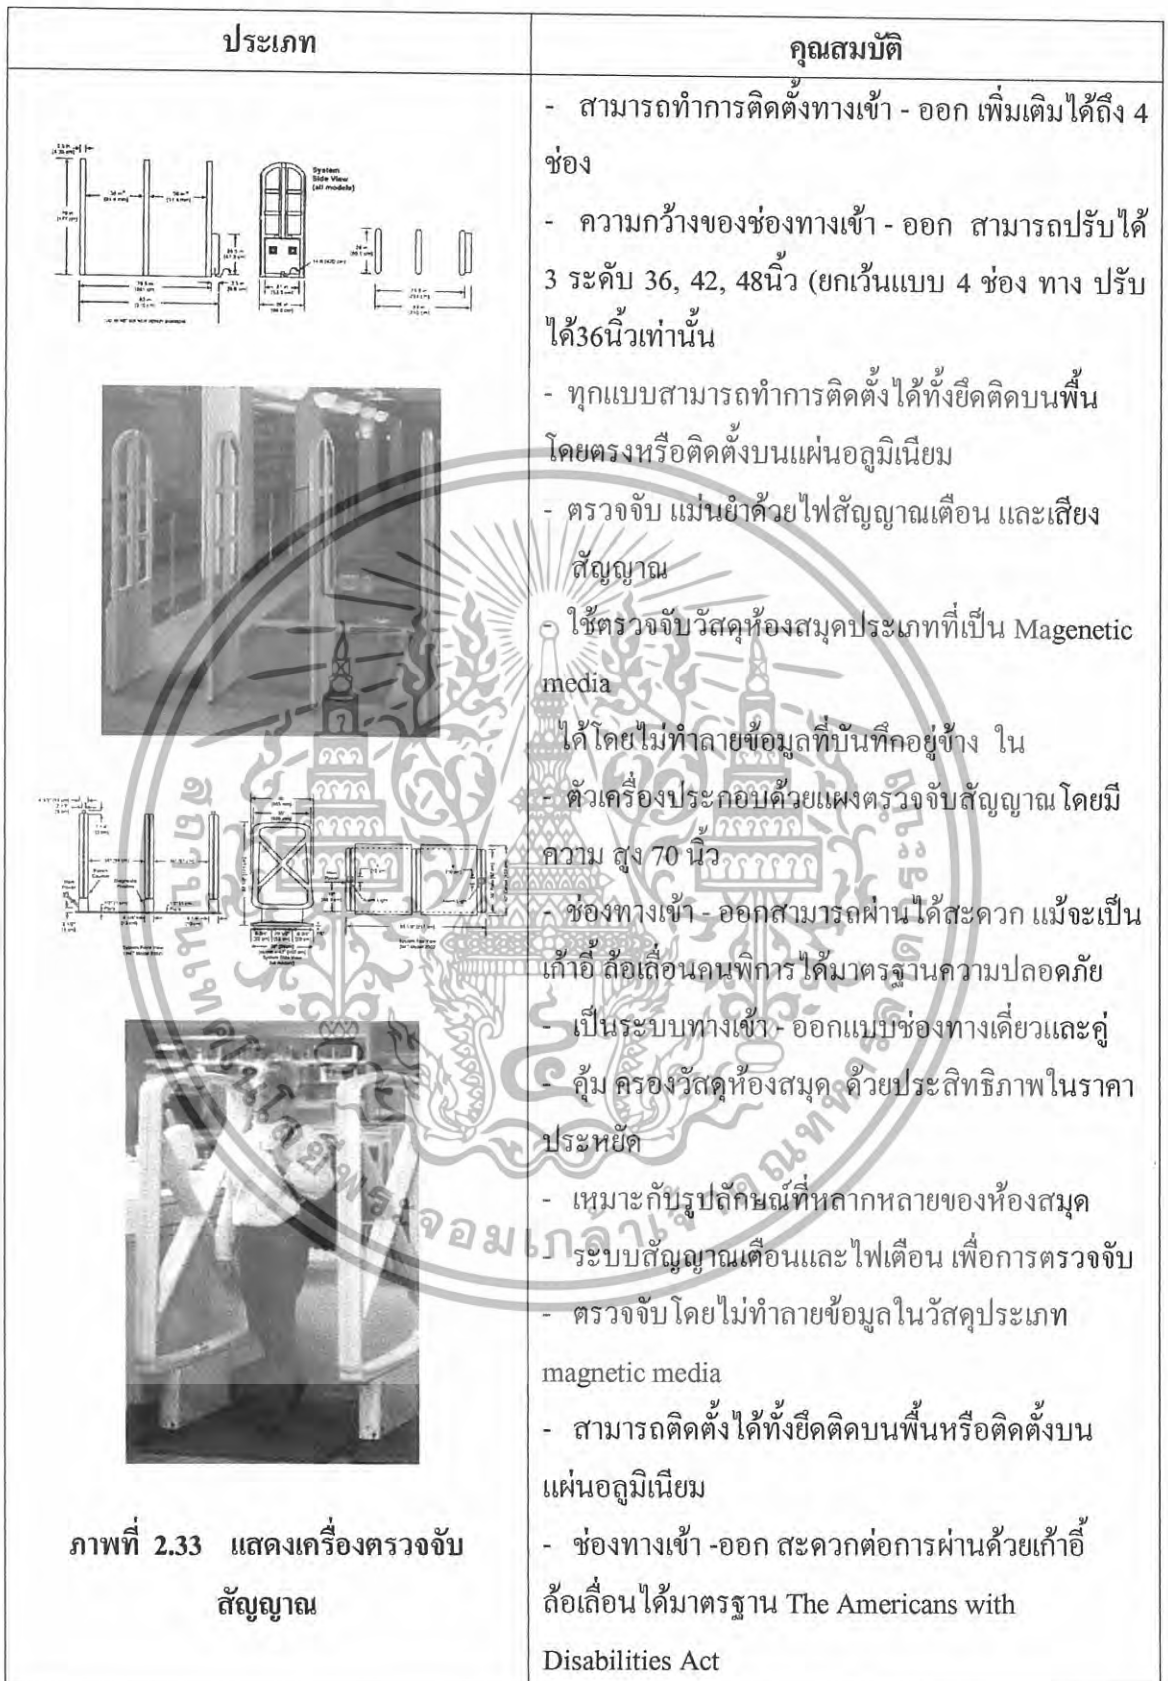 ประเภท
คุณสมบัติ
System
Side View
(all models)
- สามารถทำการติดตั้งทางเข้า - ออก เพิ่มเติมได้ถึง 4
ช่อง
- ความกว้างของช่องทางเข้า - ออก สามารถปรับได้
3 ระดับ 36, 42, 48นิ้ว (ยกเว้นแบบ 4 ช่อง ทาง ปรับ
ได้36นิ้วเท่านั้น
- ทุกแบบสามารถทำการติดตั้งได้ทั้งยึดติดบนพื้น
โดยตรงหรือติดตั้งบนแผ่นอลูมิเนียม
- ตรวจจับ แม่นยำด้วยไฟสัญญาณเตือน และเสียง
สัญญาณ
- ใช้ตรวจจับวัสดุห้องสมุดประเภทที่เป็น Magenetic
media
ได้โดยไม่ทำลายข้อมูลที่บันทึกอยู่ข้าง ใน
- ตัวเครื่องประกอบด้วยแผงตรวจจับสัญญาณโดยมี
ความ สูง 70 นิ้ว
- ช่องทางเข้า - ออกสามารถผ่านได้สะดวก แม้จะเป็น
เก้าอี้ ล้อเลื่อนคนพิการได้มาตรฐานความปลอดภัย
- เป็นระบบทางเข้า - ออกแบบช่องทางเดี่ยวและคู่
- คุ้ม ครองวัสดุห้องสมุด ด้วยประสิทธิภาพในราคา
ประหยัด
- เหมาะกับรูปลักษณ์ที่หลากหลายของห้องสมุด
- ระบบสัญญาณเตือนและไฟเตือน เพื่อการตรวจจับ
- ตรวจจับโดยไม่ทำลายข้อมูลในวัสดุประเภท
magnetic media
- สามารถติดตั้งได้ทั้งยึดติดบนพื้นหรือติดตั้งบน
แผ่นอลูมิเนียม
- ช่องทางเข้า -ออก สะดวกต่อการผ่านด้วยเก้าอี้
ล้อเลื่อนได้มาตรฐาน The Americans with
Disabilities Act
ภาพที่ 2.33 แสดงเครื่องตรวจจับ
สัญญาณ
สถาบันเทคโนโลยีพระจอมเกล้าเจ้าคุณทหารลาดกระบัง